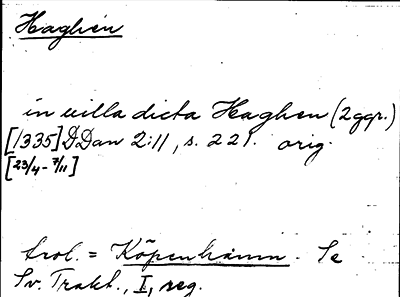 Haghen
in villa dicta Haghen (2ggr.)
[1335] DDan 2:11, s. 221. orig.
[23/4 - 7/11]
trol. = Köpenhamn. Se
Sv. Trakt., I, reg.